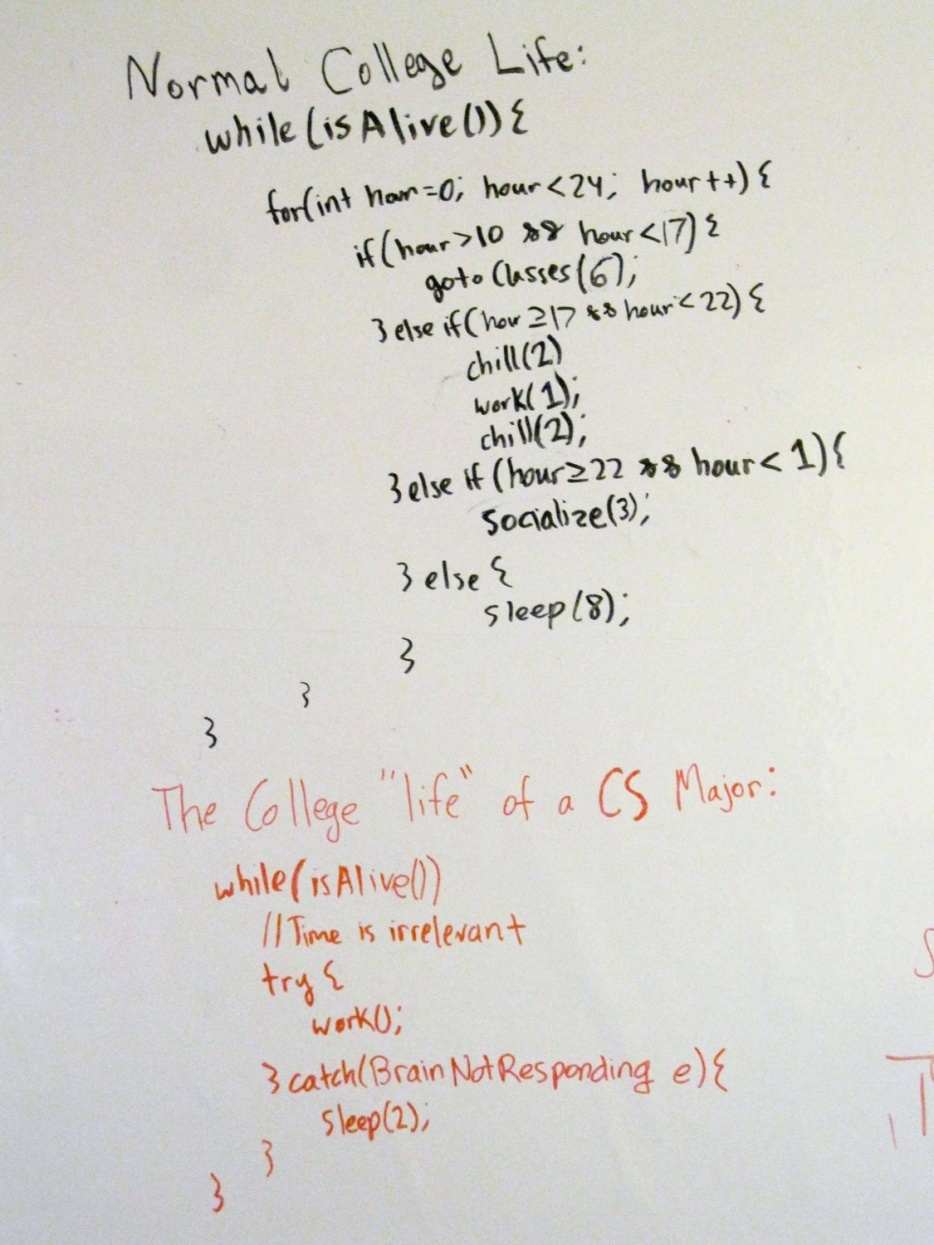 Normal College Life:
while(isAlive()){
for(int hour=0; hour<24; hour++){
if(hour>10 && hour<17){
goto Classes(6);
}else if(hour≥17 && hour<22){
chill(2)
work(1);
chill(2);
}else if(hour≥22 && hour<1){
socialize(3);
}else{
sleep(8);
}
}
}
The College "life" of a CS Major:
while(isAlive())
//Time is irrelevant
try{
work();
}catch(BrainNotResponding e){
sleep(2);
}
}